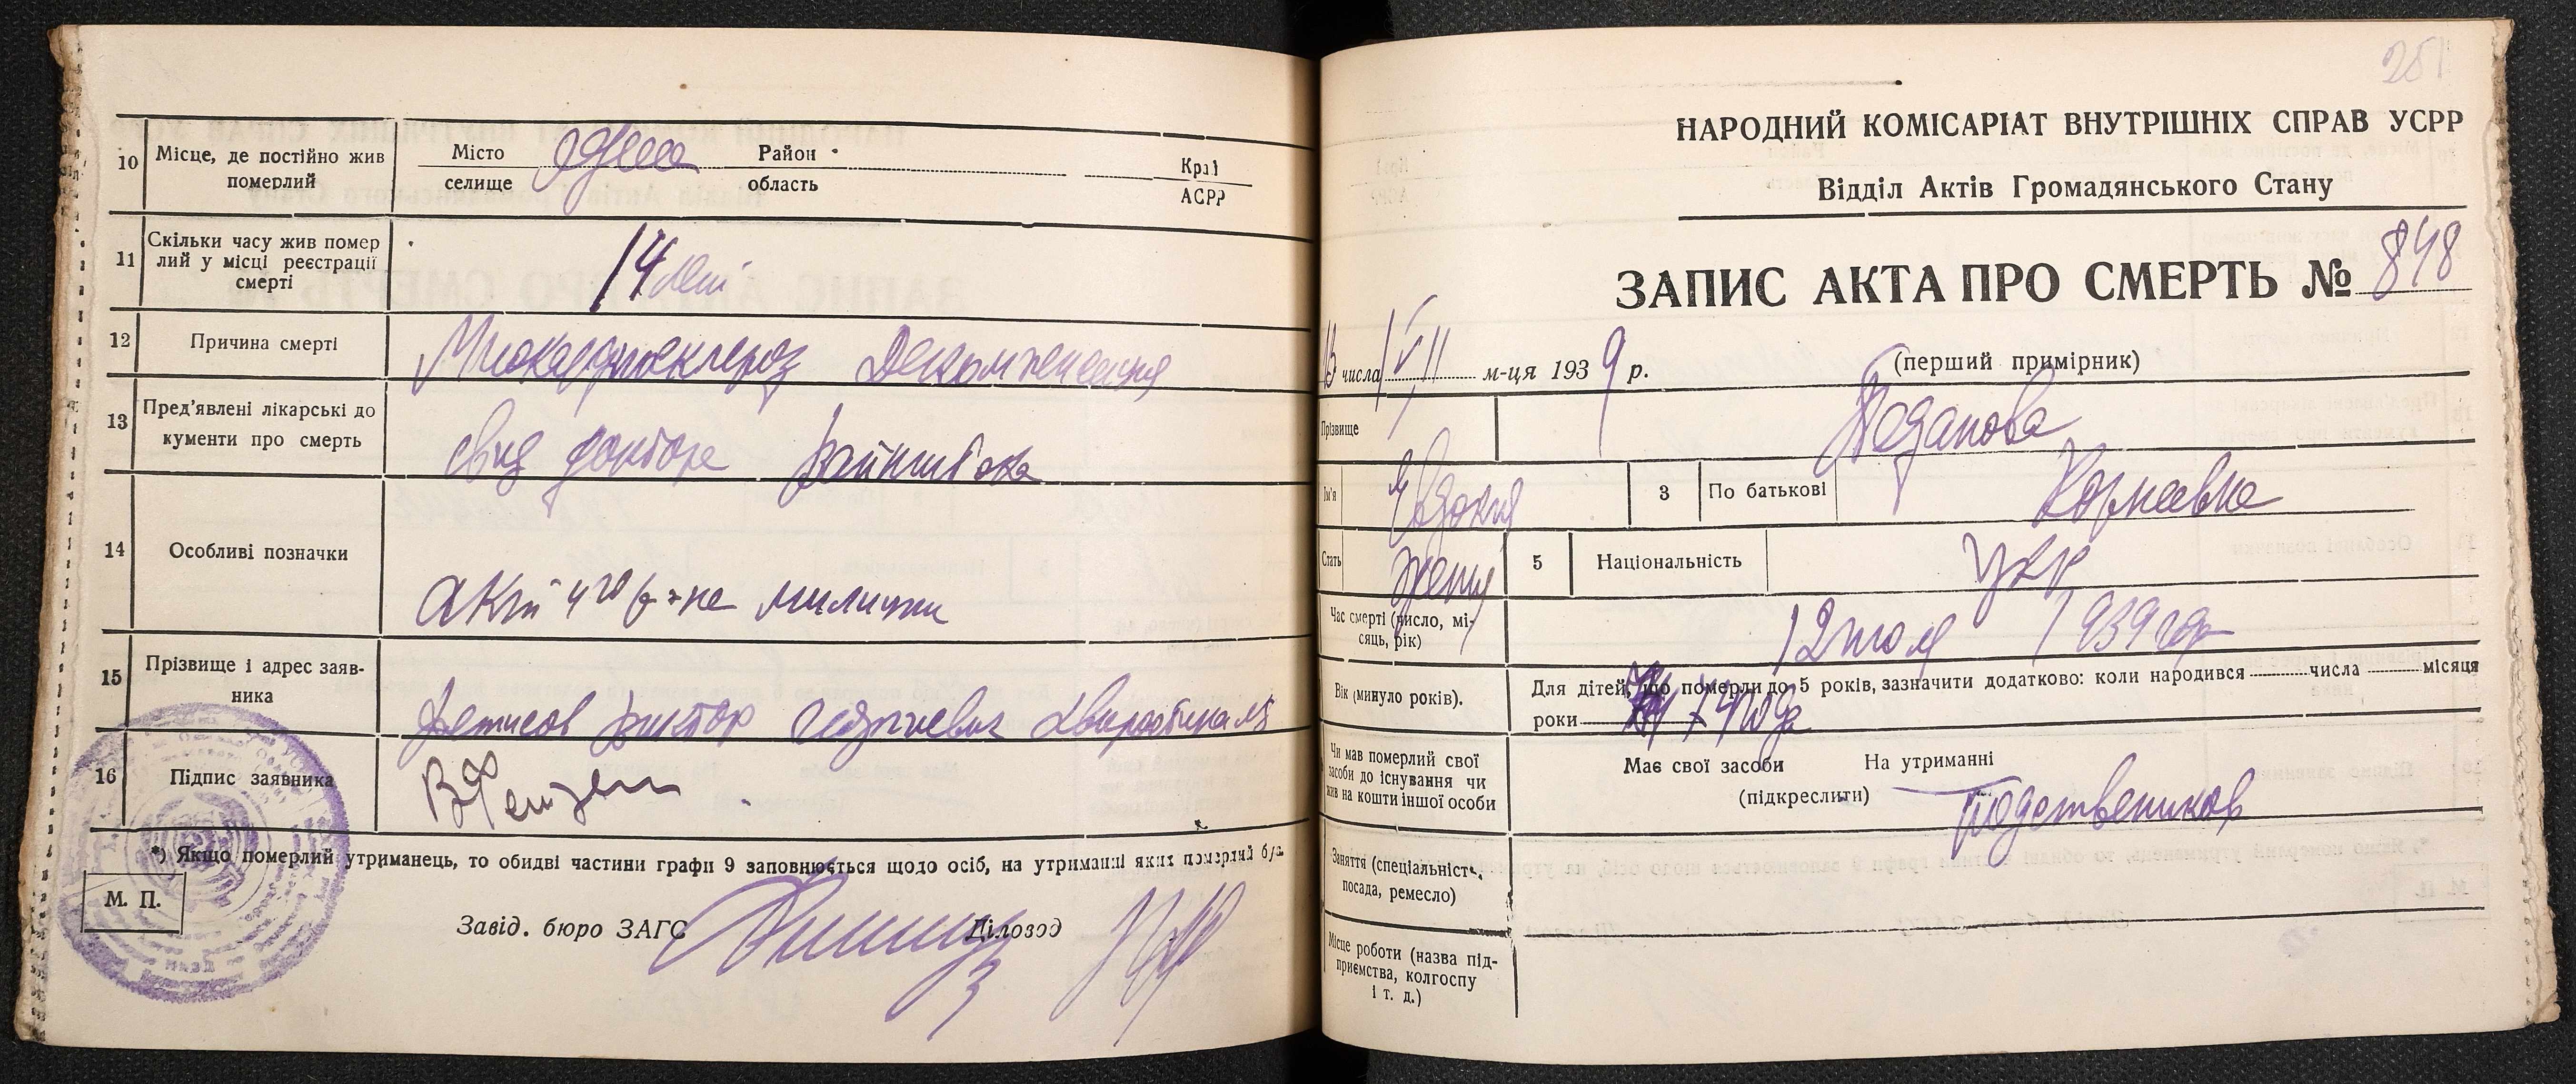 10 Місце, де постійно жив померлий
Місто селище Одесса Район область Край АСРР
11 Скільки часу жив помер
лий у місці реєстрації
смерті
14 лет
12 Причина смерті
Миокардиосклероз Декомпенсация
13 Пред'явлені лікарські до
кументи про смерть
свид доктора
14 Особливі позначки
акт 4го р-на милиции
15 Прізвище і адрес заяв-
ника
Виктор
16 Підпис заявника
*) Якщо померлий утриманець, то обидві частини графи 9 заповнюється щодо осіб, на утриманні яких померлий був
М. П.
Завід. бюро ЗАГС
Діловод
251
НАРОДНИЙ КОМІСАРІАТ ВНУТРІШНІХ СПРАВ УСРР
Відділ Актів Громадянського Стану
ЗАПИС АКТА ПРО СМЕРТЬ № 848
13 числа VII м-ця 1939 р.
(перший примірник)
Прізвище
Ім'я Евдокия
3 По батькові Корнеевна
Стать женщ
5 Національність Укр
Час смерті (число, мі-
сяць, рік)
12 июля 1939 год
Вік (минуло років).
Для дітей, що померли до 5 років, зазначити додатково: коли народився числа місяця
роки 74 года
Чи мав померлий свої
засоби до існування чи
жив на кошти іншої особи
Має свої засоби На утриманні
(підкреслити)
родствеников
Заняття (спеціальність,
посада, ремесло)
Місце роботи (назва під-
приємства, колгоспу
і т. д.)